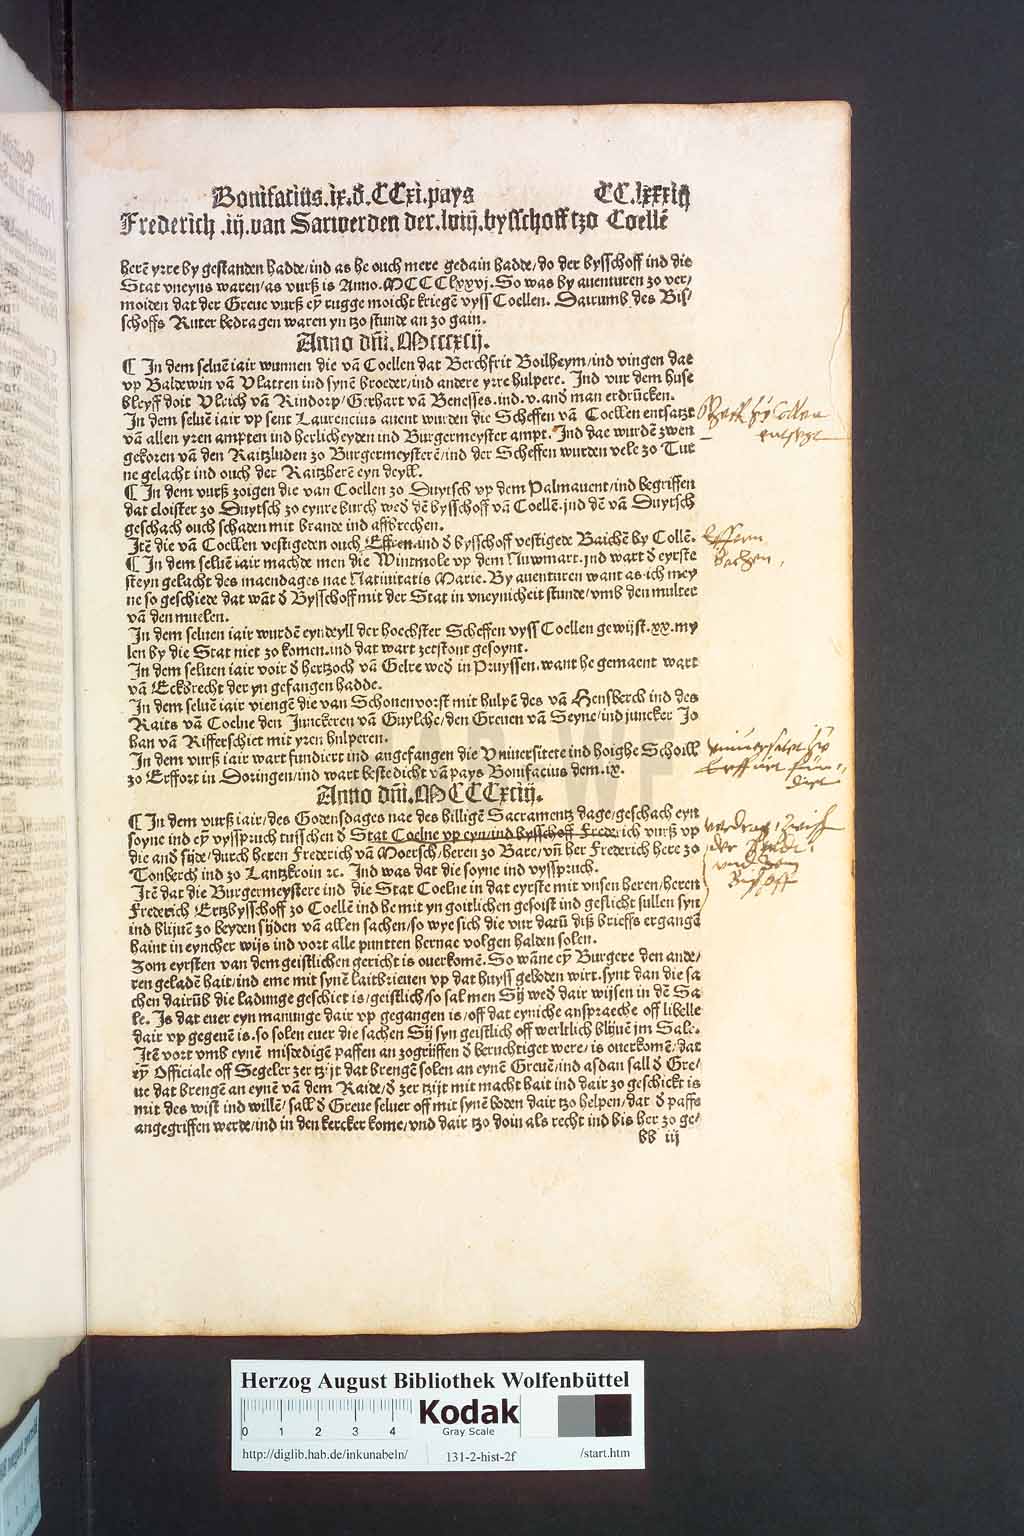 Bonifacius.ix.d̕.CCxi.pays CC.lxxxiij
Frederich .iij.van Sarwerden der.lviij.bysschoff tzo Coellē
herē yrre by gestanden hadde/ind as he ouch mere gedain hadde/do der bysschoff ind die
Stat vneyns waren/as vurß is Anno.MCCClxxvj.So was by auenturen zo ver/
moiden dat der Greue vurß eȳ rugge moicht kriegē vyss Coellen. Dairumb des Bis/
schoffs Ruter bedragen waren yn tzo stunde an zo gain.
Anno dñi.Mcccxcij.
¶ In dem seluē iair wunnen die vā Coellen dat Berchfrit Boilheym/ind vingen dae
vp Baldewin vā Vlatten ind synē broeder/ind andere yrre hulpere. Ind vur dem huse
bleyff doit Vlrich vā Rindorp/Gerhart vā Benesses.ind.v.and̕ man erdrücken.
In dem seluē iair vp sent Laurencius auent wurden die Scheffen vā Coellen entsatzt
vā allen yren ampten ind herlicheyden ind Burgermeyster ampt. Ind dae wurdē zwen
gekoren vā den Raitzluden zo Burgermeysterē/ind der Scheffen wurden vele zo Tur
ne gelacht ind ouch der Raitzherē eyn deyll.
¶ In dem vurß zoigen die van Coellen zo Duytsch vp dem Palmauent/ind begriffen
dat cloister zo Duytsch zo eynre burch wed̕ dē bysschoff vā Coellē.ind dē vā Duytsch
geschach ouch schaden mit brande ind affbrechen.
Itē die vā Coellen vestigeden ouch Effren.ind d̕ bysschoff vestigede Baichē by Collē.
¶ In dem seluē iair machde men die Wintmole vp dem Nuwmart.ind wart d̕ eyrste
steyn gelacht des maendages nae Natiuitatis Marie. By auenturen want as ich mey
ne so geschiede dat wāt d̕ Bysschoff mit der Stat in vneynicheit stunde/vmb den multer
vā den muelen.
In dem seluen iair wurdē eyndeyll der hoechster Scheffen vyss Coellen gewijst.xx.my
len by die Stat niet zo komen.ind dat wart zerstont gesoynt.
In dem seluen iair voir d̕ hertzoch vā Gelre wed̕ in Pruyssen.want he gemaent wart
vā Eckbrecht der yn gefangen hadde.
In dem seluē iair viengē die van Schonenvorst mit hulpē des vā Hensberch ind des
Raits vā Coelne den Junckeren vā Guylche/den Greuen vā Seyne/ind juncker Jo
han vā Rifferschiet mit yren hulperen.
In dem vurß iair wart fundiert ind angefangen die Vniuersitete ind hoighe Schoill
zo Erffort in Doringen/ind wart bestedicht vā pays Bonifacius dem.ix.
Anno dñi.MCCCxciij.
¶ In dem vurß iair/des Godensdages nae des billigē Sacramentz dage/geschach eyn
soyne ind eȳ vysspruch tusschen d̕ Stat Coelne vp eyn/ind bysschoff Frederich vurß vp
die and̕ sijde/durch heren Frederich vā Moersch/heren zo Bare/vñ her Frederich here zo
Tonberch ind zo Lantzkroin ꝛc. Ind was dat die soyne ind vysspruch.
Itē dat die Burgermeystere ind die Stat Coelne in dat eyrste mit vnsen heren/heren
Frederich Ertzbysschoff zo Coellē ind he mit yn goitlichen gesoist ind geslicht sullen syn
ind blijuē zo beyden sijden vā allen sachen/so wye sich die vur datū diß brieffs ergangē
haint in eyncher wijs ind vort alle puntten hernae volgen halden solen.
Zom eyrsten van dem geistlichen gericht is ouerkomē. So wāne eȳ Burgere den ande/
ren geladē hait/ind eme mit synē laitbrieuen vp dat huyss geboden wirt.synt dan die sa
chen dairūb die ladunge geschiet is/geistlich/so sal men Sij wed̕ dair wijsen in dē Sa
le. Is dat euer eyn maninge dair vp gegangen is/off dat eyniche anspraeche off libelle
dair vp gegeuē is.so solen euer die sachen Sij syn geistlich off werltlich blijuē jm Sale.
Itē vort vmb eynē misdedigē paffen an zogriiffen d̕ beruchtiget were/is ouerkomē/dat
eȳ Officiale off Segeler zer tzijt dat brengē solen an eynē Greuē/ind asdan sall d̕ Gre/
ue dat brengē an eynē vā dem Raide/d̕ zer tzijt mit macht hait ind dair zo geschickt is
mit des wist ind willē/sall d̕ Greue seluer off mit synē boden dair tzo helpen/dat d̕ paffe
angegriffen werde/ind in den kercker kome/vnd dair tzo doin als recht ind bis her zo ge/
bb iij
Effern
Bachen
Herzog August Bibliothek Wolfenbüttel
0 1 2 3 4
Kodak
Gray Scale
http://diglib.hab.de/inkunabeln/ 131-2-hist-2f /start.htm